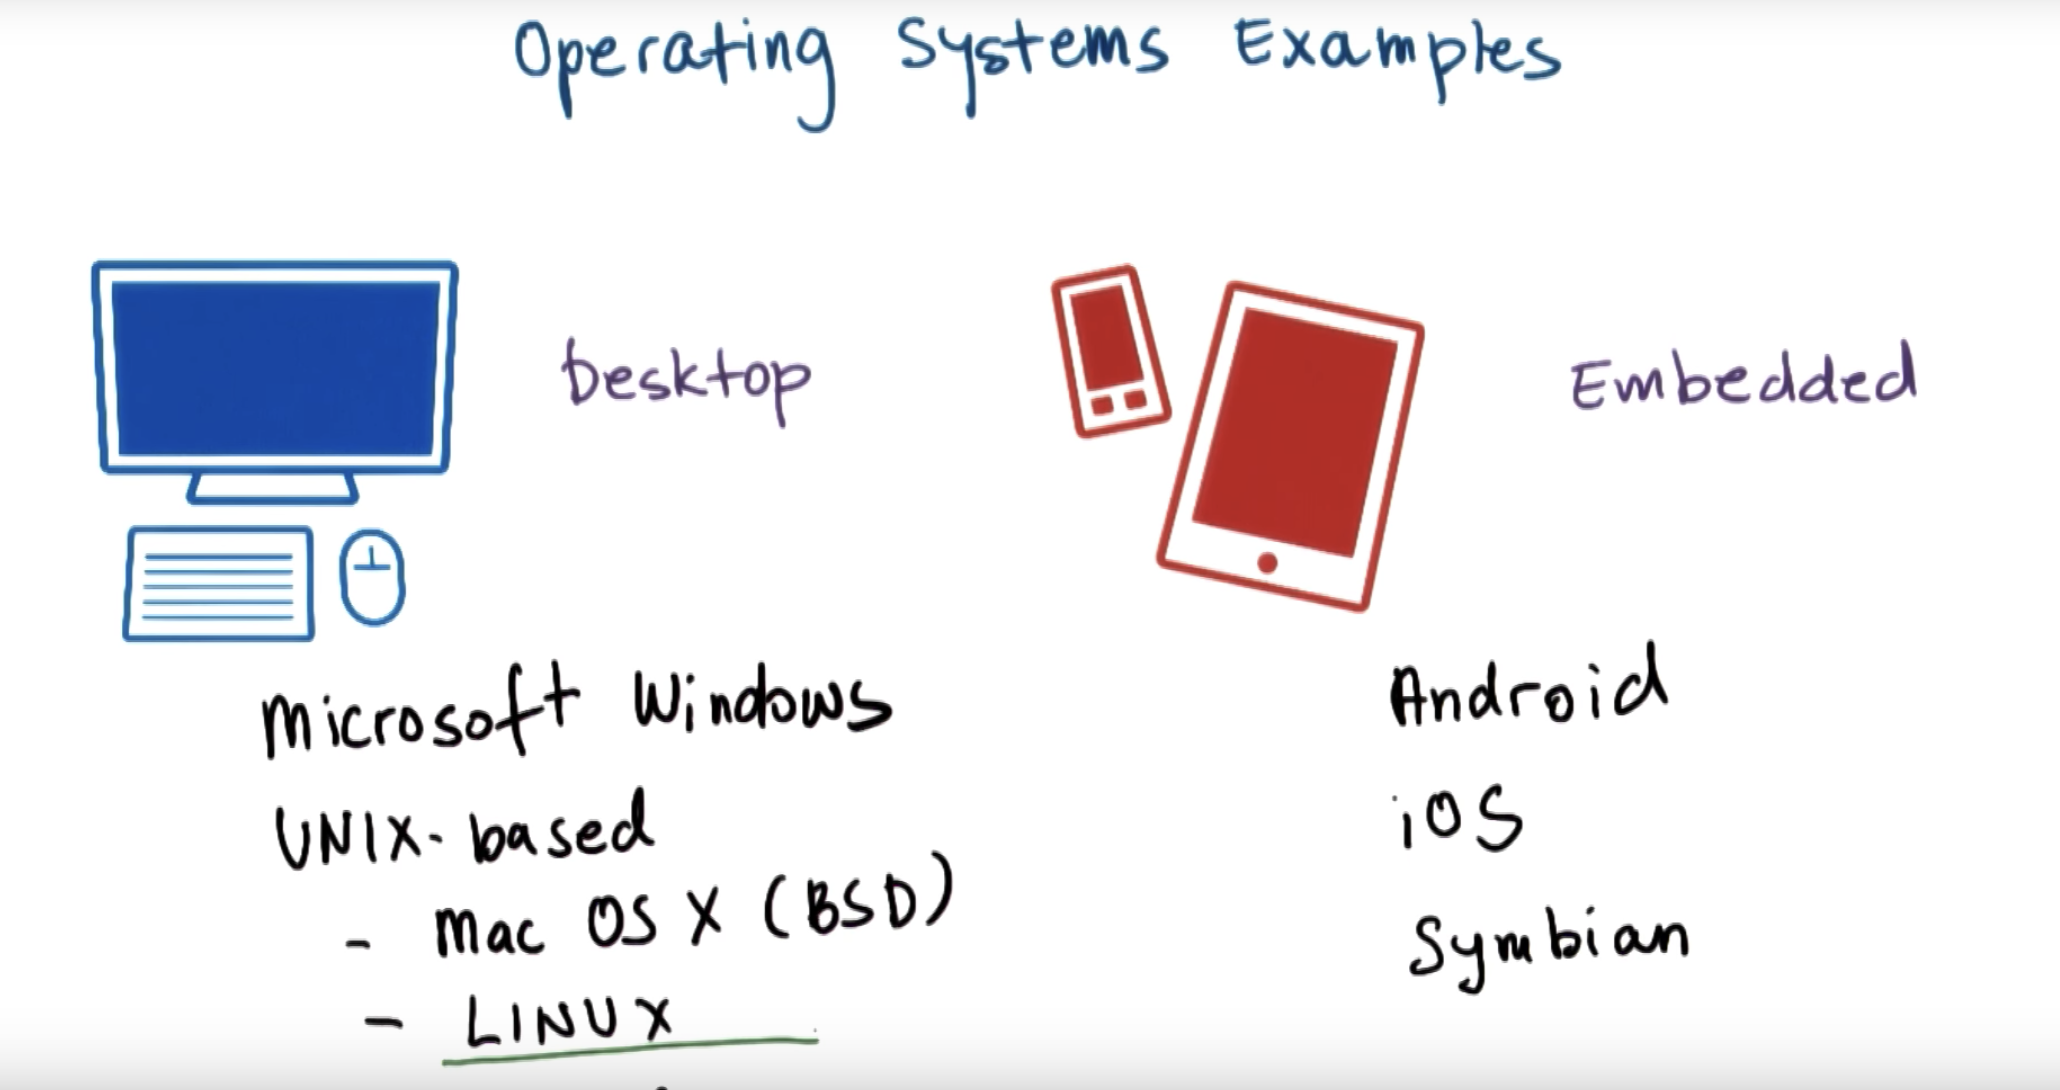 Operating Systems Examples
Desktop
Embedded
Microsoft Windows
UNIX-based
- Mac OS X (BSD)
- LINUX
Android
iOS
Symbian